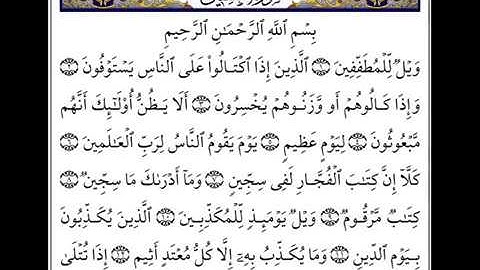 بِسْمِ ٱللَّهِ ٱلرَّحْمَـٰنِ ٱلرَّحِيمِ
وَيْلٌ لِّلْمُطَفِّفِينَ ١ ٱلَّذِينَ إِذَا ٱكْتَالُوا۟ عَلَى ٱلنَّاسِ يَسْتَوْفُونَ ٢
وَإِذَا كَالُوهُمْ أَو وَّزَنُوهُمْ يُخْسِرُونَ ٣ أَلَا يَظُنُّ أُو۟لَـٰٓئِكَ أَنَّهُم
مَّبْعُوثُونَ ٤ لِيَوْمٍ عَظِيمٍ ٥ يَوْمَ يَقُومُ ٱلنَّاسُ لِرَبِّ ٱلْعَـٰلَمِينَ ٦
كَلَّآ إِنَّ كِتَـٰبَ ٱلْفُجَّارِ لَفِى سِجِّينٍ ٧ وَمَآ أَدْرَىٰكَ مَا سِجِّينٌ ٨
كِتَـٰبٌ مَّرْقُومٌ ٩ وَيْلٌ يَوْمَئِذٍ لِّلْمُكَذِّبِينَ ١٠ ٱلَّذِينَ يُكَذِّبُونَ
بِيَوْمِ ٱلدِّينِ ١١ وَمَا يُكَذِّبُ بِهِۦٓ إِلَّا كُلُّ مُعْتَدٍ أَثِيمٍ ١٢ إِذَا تُتْلَىٰ